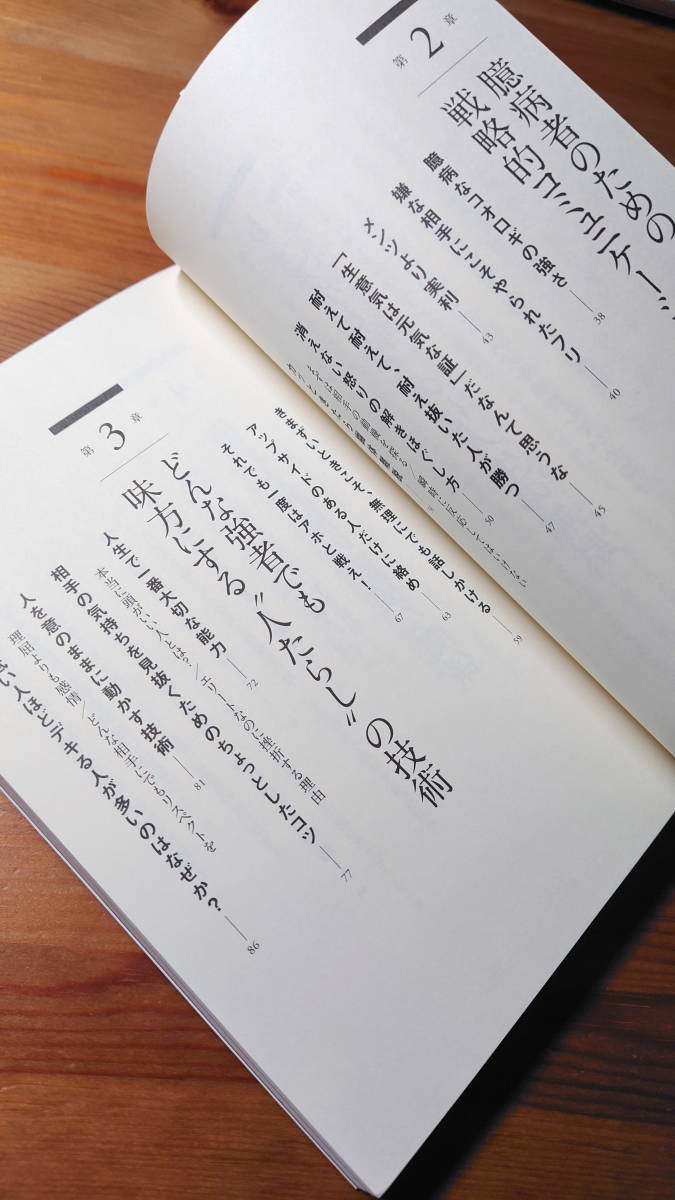 第2章
臆病者のための
戦略的コミュニケーシ
臆病なコオロギの強さ 38
嫌な相手にこそやられたフリ 40
メンツより実利 43
「生意気は元気な証」だなんて思うな 45
耐えて、耐えて、耐え抜いた人が勝つ 47
消えない怒りの解きほぐし方 50
瞬時に反応してはいけない
きまずいときこそ、無理にでも話しかける 59
アップサイドのある人だけに絡め 63
それでも一度はアホと戦え! 67
第3章
どんな強者でも
味方にする“人たらし”の技術
人生で一番大切な能力 72
本当に頭がいい人とは?/エリートなのに挫折する理由
相手の気持ちを見抜くためのちょっとしたコツ 77
人を意のままに動かす技術 81
理屈よりも感情/どんな相手にでもリスペクトを
い人ほどデキる人が多いのはなぜか? 86